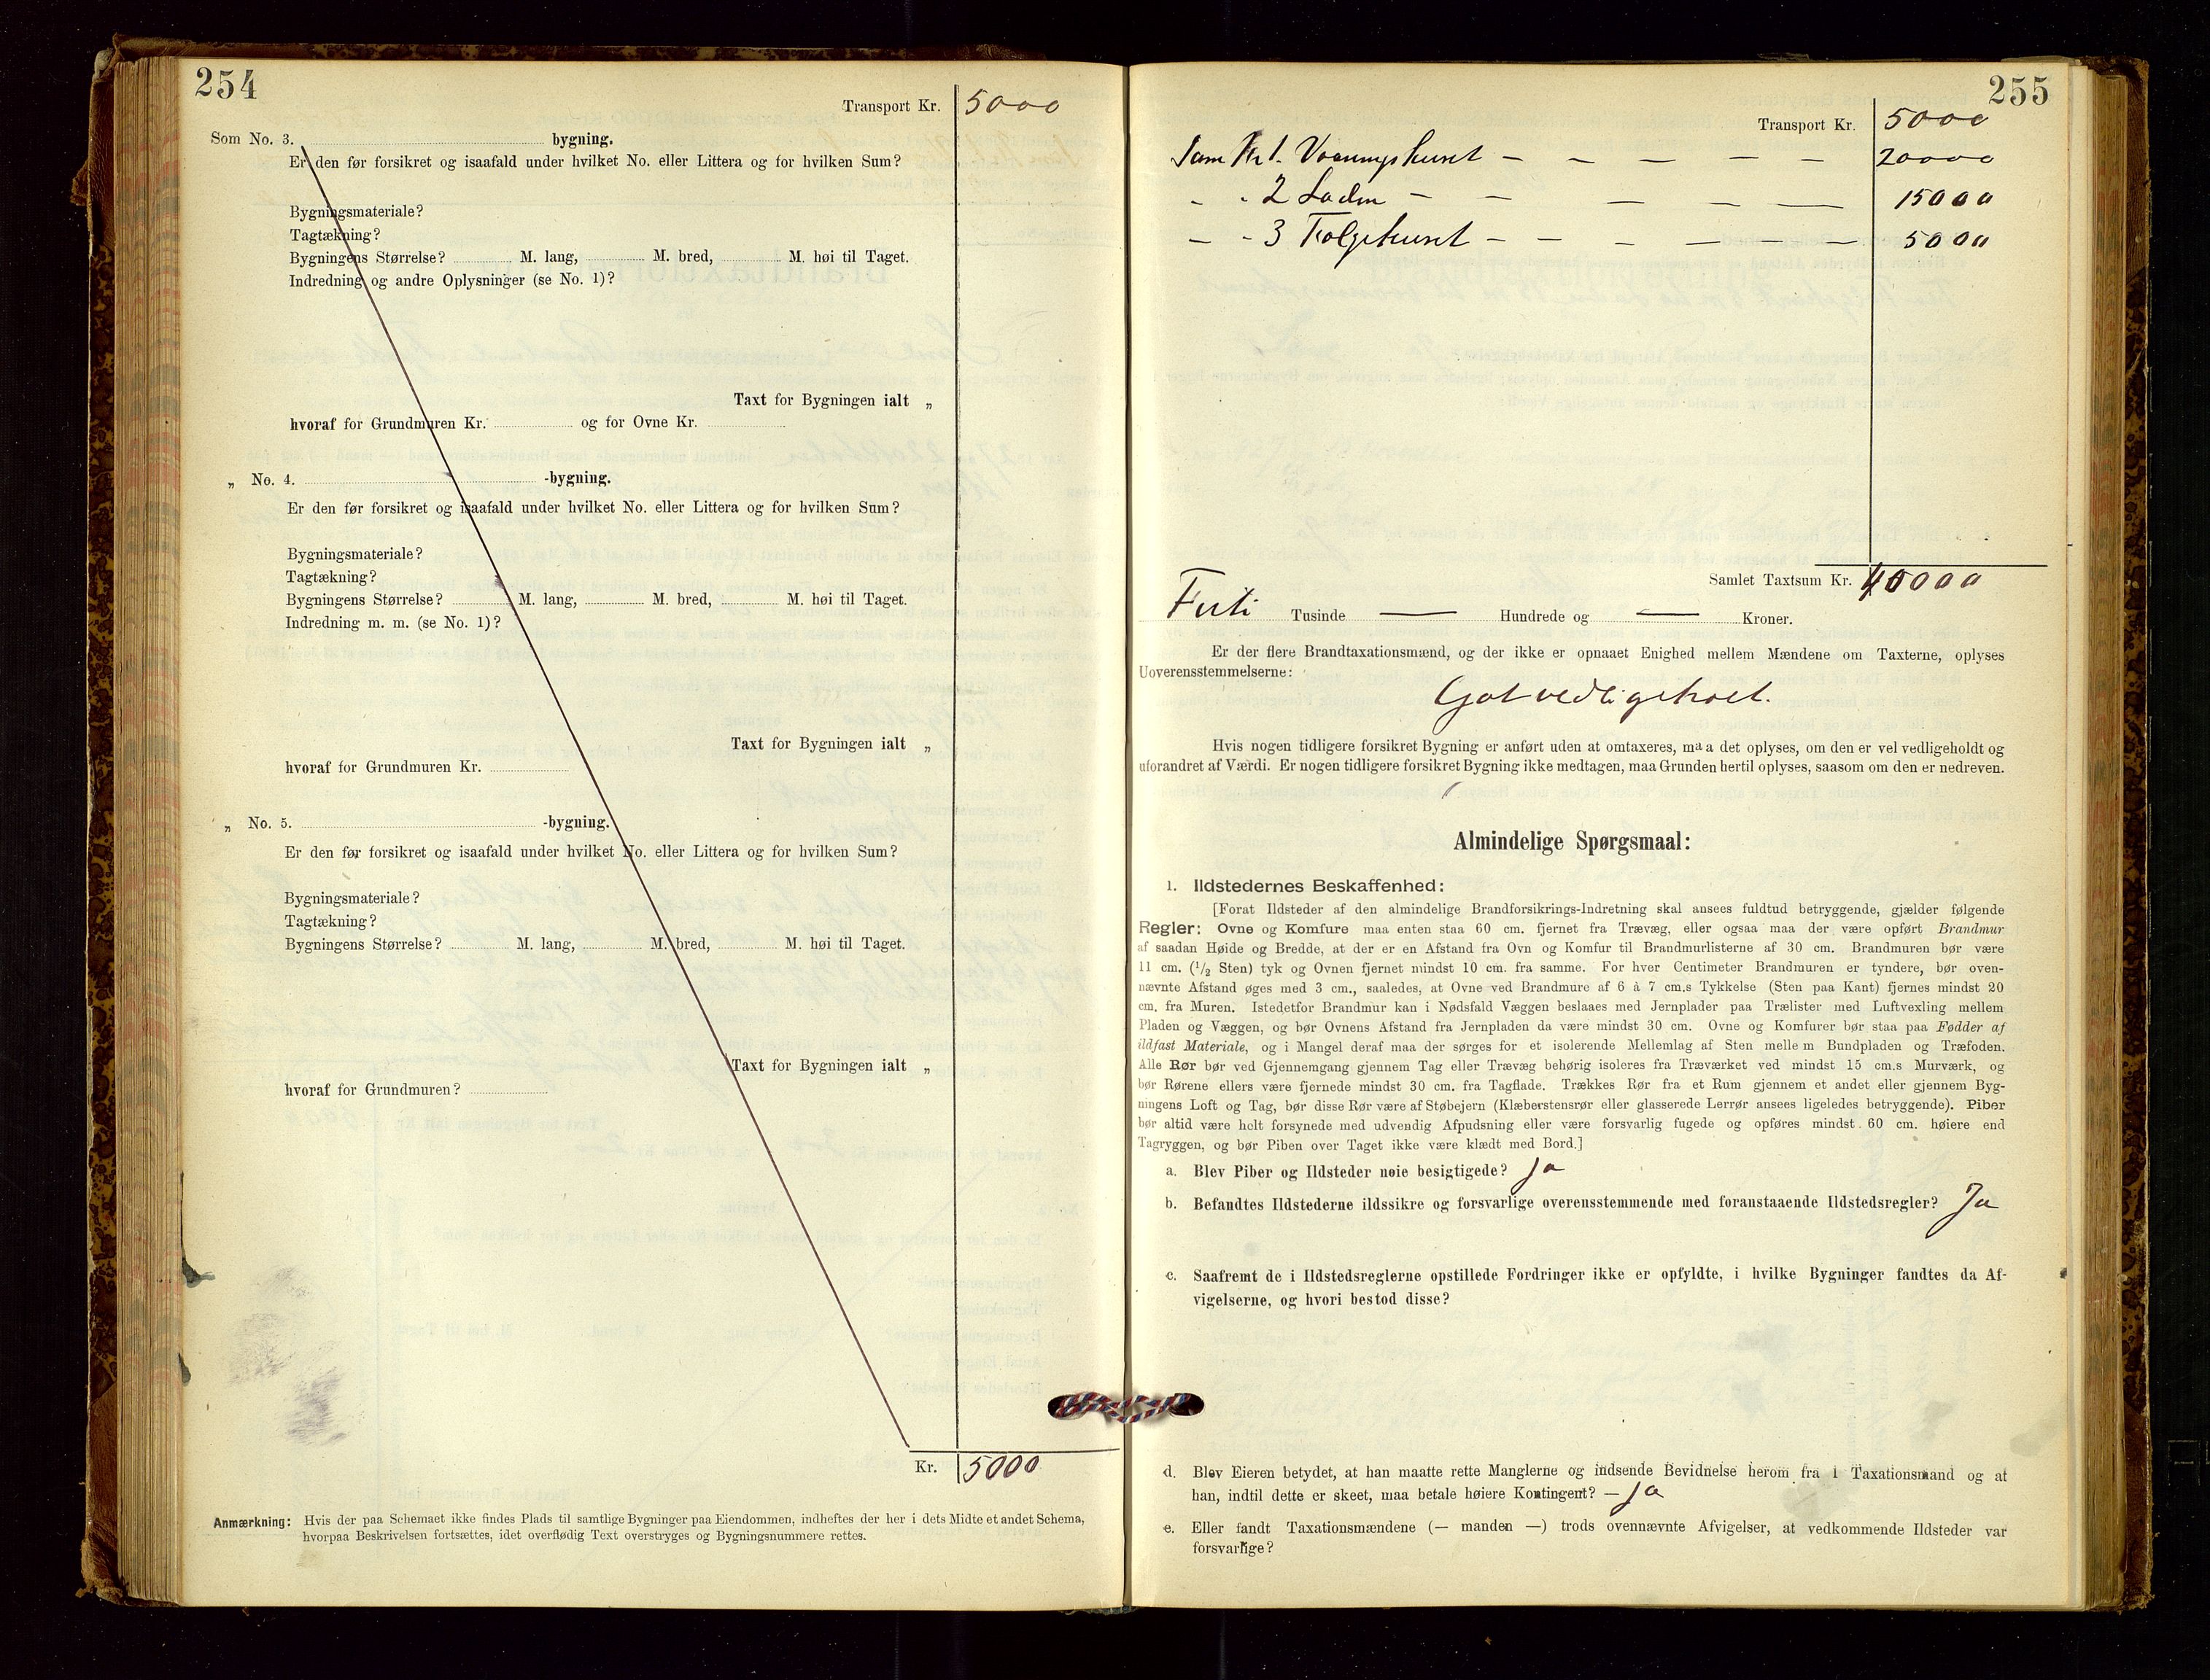 254
Transport Kr. 5000
Som No. 3. bygning.
Er den før forsikret og isaafald under hvilket No. eller Littera og for hvilken Sum?
Bygningsmateriale?
Tagtækning?
Bygningens Størrelse? M. lang, M. bred, M. høi til Taget.
Indredning og andre Oplysninger (se No. 1)?
Taxt for Bygningen ialt „
hvoraf for Grundmuren Kr. og for Ovne Kr.
„ No. 4. -bygning.
Er den før forsikret og isaafald under hvilket No. eller Littera og for hvilken Sum?
Bygningsmateriale?
Tagtækning?
Bygningens Størrelse? M. lang, M. bred, M. høi til Taget.
Indredning m. m. (se No. 1)?
Taxt for Bygningen ialt „
hvoraf for Grundmuren Kr.
„ No. 5. -bygning.
Er den før forsikret og isaafald under hvilket No. eller Littera og for hvilken Sum?
Bygningsmateriale?
Tagtækning?
Bygningens Størrelse? M. lang, M. bred, M. høi til Taget.
Taxt for Bygningen ialt „
hvoraf for Grundmuren?
Kr. 5000
Anmærkning: Hvis der paa Schemaet ikke findes Plads til samtlige Bygninger paa Eiendommen, indheftes der her i dets Midte et andet Schema,
hvorpaa Beskrivelsen fortsættes, idet overflødig Text overstryges og Bygningsnummere rettes.
255
Transport Kr. 5000
Som Nr 1. Vaaningshuset – – – – – 20000
- - 2 Laden – – – – – 15000
- - 3 Folgehuset – – – – – – 5000
Samlet Taxtsum Kr. 40000
Firti Tusinde — Hundrede og — Kroner.
Er der flere Brandtaxationsmænd, og der ikke er opnaaet Enighed mellem Mændene om Taxterne, oplyses
Uoverensstemmelserne:
Got vedligehoet.
Hvis nogen tidligere forsikret Bygning er anført uden at omtaxeres, maa det oplyses, om den er vel vedligeholdt og
uforandret af Værdi. Er nogen tidligere forsikret Bygning ikke medtagen, maa Grunden hertil oplyses, saasom om den er nedreven.
Almindelige Spørgsmaal:
1. Ildstedernes Beskaffenhed:
[Forat Ildsteder af den almindelige Brandforsikrings-Indretning skal ansees fuldtud betryggende, gjælder følgende
Regler: Ovne og Komfure maa enten staa 60 cm. fjernet fra Trævæg, eller ogsaa maa der være opført Brandmur
af saadan Høide og Bredde, at der er en Afstand fra Ovn og Komfur til Brandmurlisterne af 30 cm. Brandmuren bør være
11 cm. (1/2 Sten) tyk og Ovnen fjernet mindst 10 cm. fra samme. For hver Centimeter Brandmuren er tyndere, bør oven-
nævnte Afstand øges med 3 cm., saaledes, at Ovne ved Brandmure af 6 à 7 cm.s Tykkelse (Sten paa Kant) fjernes mindst 20
cm. fra Muren. Istedetfor Brandmur kan i Nødsfald Væggen beslaaes med Jernplader paa Trælister med Luftvexling mellem
Pladen og Væggen, og bør Ovnens Afstand fra Jernpladen da være mindst 30 cm. Ovne og Komfurer bør staa paa Fødder af
ildfast Materiale, og i Mangel deraf maa der sørges for et isolerende Mellemlag af Sten mellem Bundpladen og Træfoden.
Alle Rør bør ved Gjennemgang gjennem Tag eller Trævæg behørig isoleres fra Træværket ved mindst 15 cm.s Murværk, og
bør Rørene ellers være fjernede mindst 30 cm. fra Tagflade. Trækkes Rør fra et Rum gjennem et andet eller gjennem Byg-
ningens Loft og Tag, bør disse Rør være af Støbejern (Klæberstensrør eller glasserede Lerrør ansees ligeledes betryggende). Piber
bør altid være helt forsynede med udvendig Afpudsning eller være forsvarlig fugede og opføres mindst 60 cm. høiere end
Tagryggen, og bør Piben over Taget ikke være klædt med Bord.]
a. Blev Piber og Ildsteder nøie besigtigede? Ja
b. Befandtes Ildstederne ildssikre og forsvarlige overensstemmende med foranstaaende Ildstedsregler? Ja
c. Saafremt de i Ildstedsreglerne opstillede Fordringer ikke er opfyldte, i hvilke Bygninger fandtes da Af-
vigelserne, og hvori bestod disse?
d. Blev Eieren betydet, at han maatte rette Manglerne og indsende Bevidnelse herom fra 1 Taxationsmand og at
han, indtil dette er skeet, maa betale høiere Kontingent? — Ja
e. Eller fandt Taxationsmændene (— manden —) trods ovennævnte Afvigelser, at vedkommende Ildsteder var
forsvarlige?